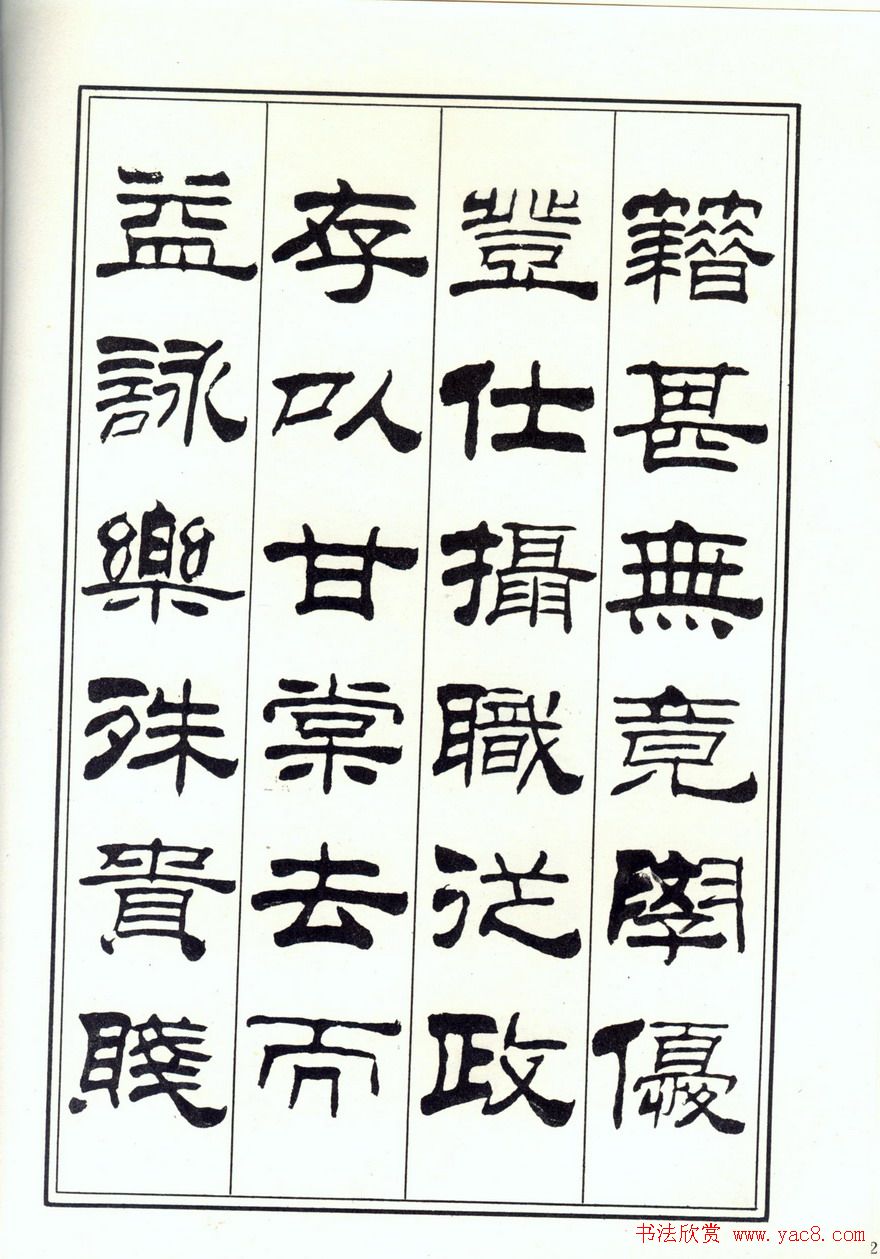 籍甚無竟學優
登仕攝職從政
存以甘棠去而
益詠樂殊貴賤
书法欣赏 www.yac8.com
2